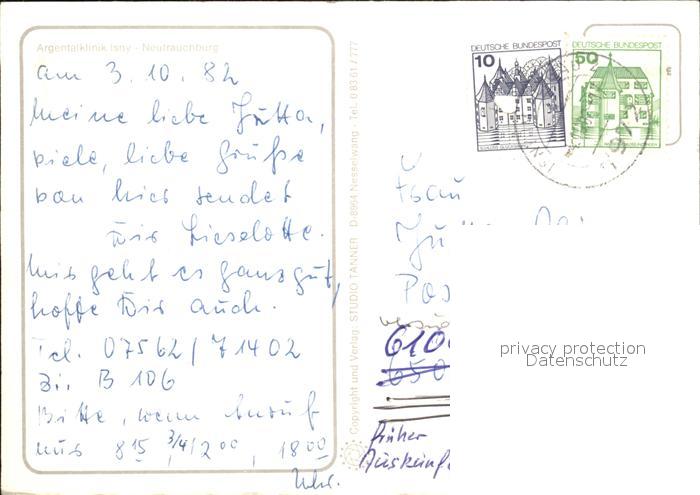 Argentalklinik Isny - Neutrauchburg
am 3.10.82
Meine liebe Jutta,
viele, liebe Grüße
von hier sendet
Dir Lieselotte.
Mir geht es ganz gut,
hoffe Dir auch.
Tel. 07562/71402
Zi. B 106
Bitte, wenn Anruf
nur 8 15, 3/4 12 00, 18 00
Uhr.
Copyright und Verlag: STUDIO TANNER D-8964 Nesselwang · Tel. 0 83 61 / 777
DEUTSCHE BUNDESPOST
10
DEUTSCHE BUNDESPOST
50
ISNY
Frau
Pos
610
650
früher
privacy protection
Datenschutz